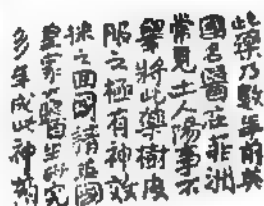 此藥乃數年前英
國名醫在非洲
常見土人陽事不
舉將此藥樹皮
服之極有神效
之回國請國
皇家醫生研究
多年成此神